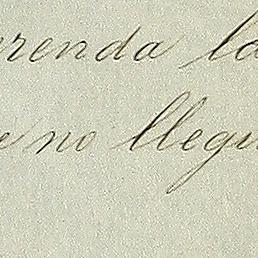 rrenda la
e no llegu